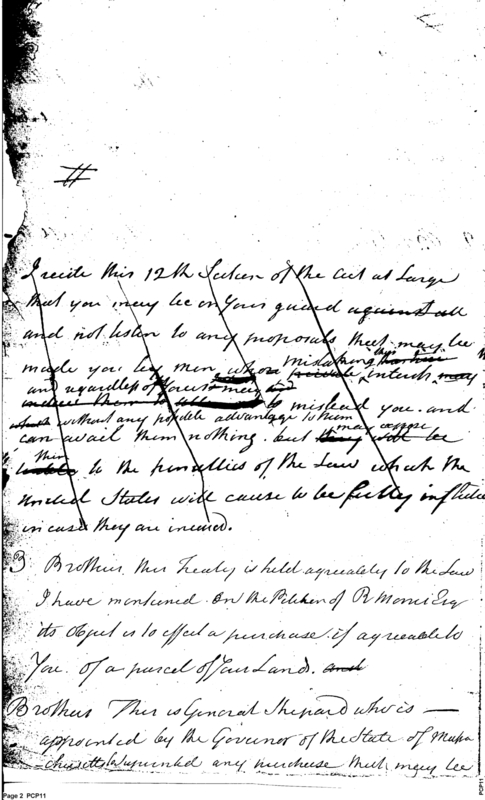 #
I recite this 12th Section of the act at Large
that you may be on Your guard against all
and not listen to any proposals that may be
made you by men whose mistaking their private interest may
and regardless of Yours may
to mislead you. and
without any possible advantage to them
can avail them nothing. but may expose
them to the penalties of the Law which the
United States will cause to be fully inflicted
in case they are incured.
3 Brothers, this Treaty is held agreeably to the Law
I have mentioned. On the Petition of R Morris Esq
its object is to effect a purchase if agreeable to
You. of a parcel of Your Land. and
Brothers This is General Shepard who is —
appointed by the Governor of the State of Massa
chusetts any purchase that may be
Page 2 PCP11
PCP11